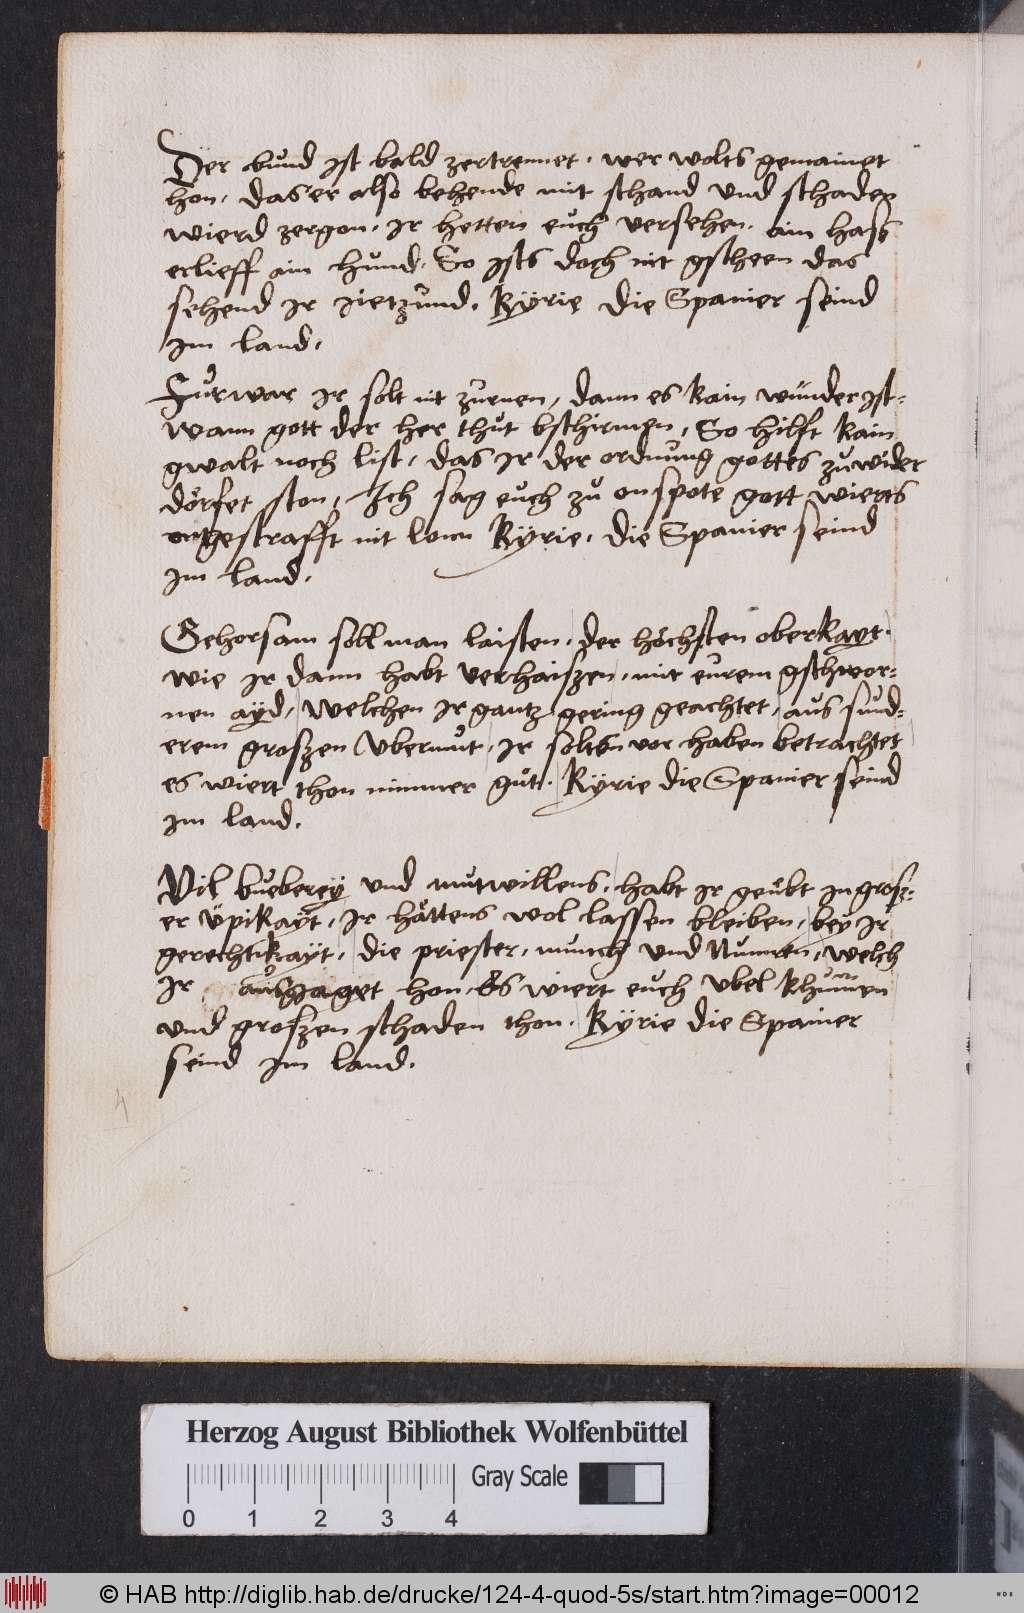 Der bund ist bald zertrennet, wer wolts gemainet
hon, das er also behende mit schand und schaden
wierd zergon, Ir hetten euch versehen, ain hass
erlieff ain hund, So ists doch nit gscheen das
sehend Ir iietzund, Kÿrie die Spanier seind
im land,
Furwar Ir solt nit zürnen, dann es kain wunder ist,
wann gott der her thut bschirmen, So hilft kain
gwalt noch list, das Ir der ordnung gottes zuwider
dörfet ston, Ich sag euch zu on spote gott wierts
ongestrafft nit lonn Kÿrie, die Spanier seind
im land,
Gehorsam soll man laisten, der höchsten oberkayt,
wie Ir dann habt verhaiszen, mit eurem gschwor-
nen aÿd, welchen Ir gantz gering geachtet, aus sund-
erem groszen Ubermut, Ir solten vor haben betrachtet
es wiert thon nimmer gut, Kÿrie die Spanier seind
im land,
Vil buebereÿ und mutwillens, habt Ir geübt in grosz-
er üpikaÿt, Ir hättens wol lassen bleiben, beÿ Ir
gerechtikaÿt, die priester, munch und Nunnen, welch
Ir ausgjaget hon, Es wiert euch ubel khumen
und groszen schaden thon, Kÿrie die Spanier
seind im land,
4
Herzog August Bibliothek Wolfenbüttel
Gray Scale
0 1 2 3 4
© HAB http://diglib.hab.de/drucke/124-4-quod-5s/start.htm?image=00012